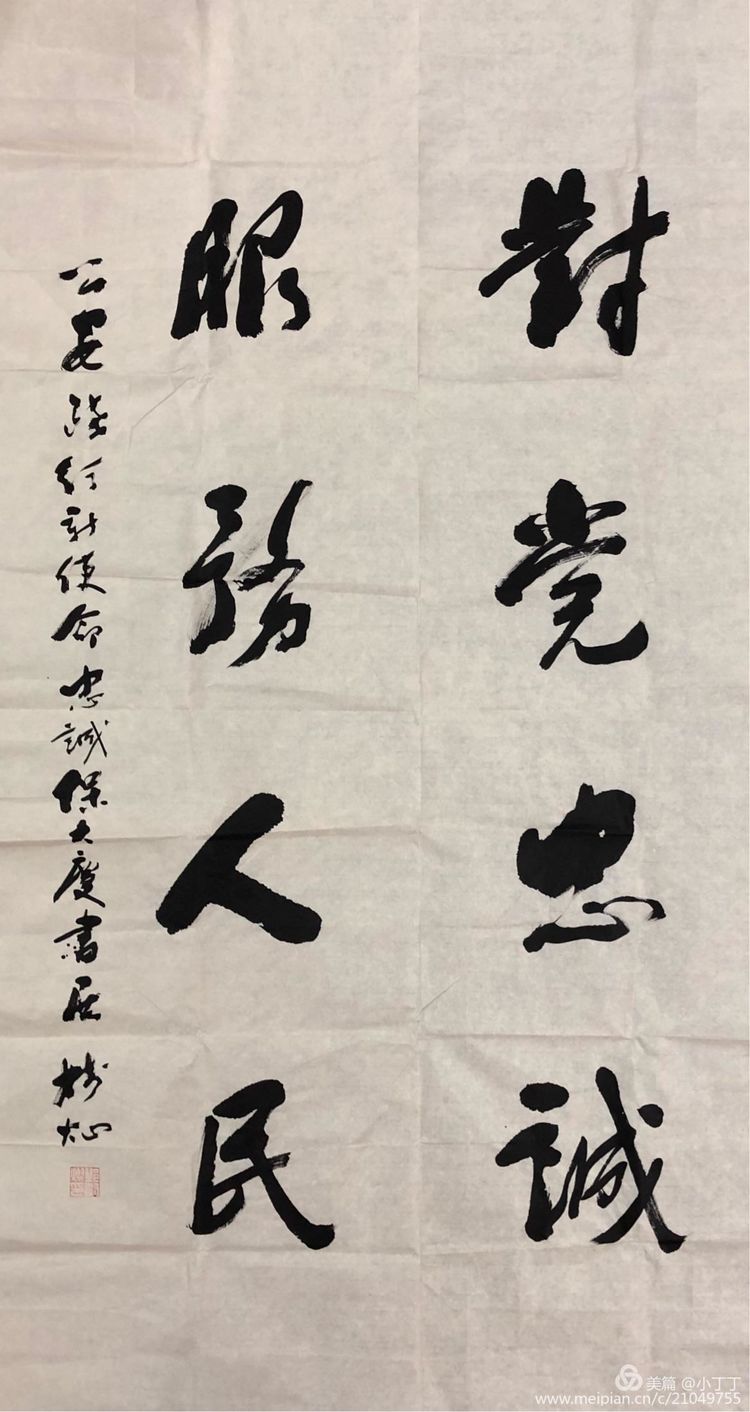 對党忠誠
服務人民
公安踐行新使命忠誠保大慶書
美篇 @小丁丁
www.meipian.cn/c/21049755